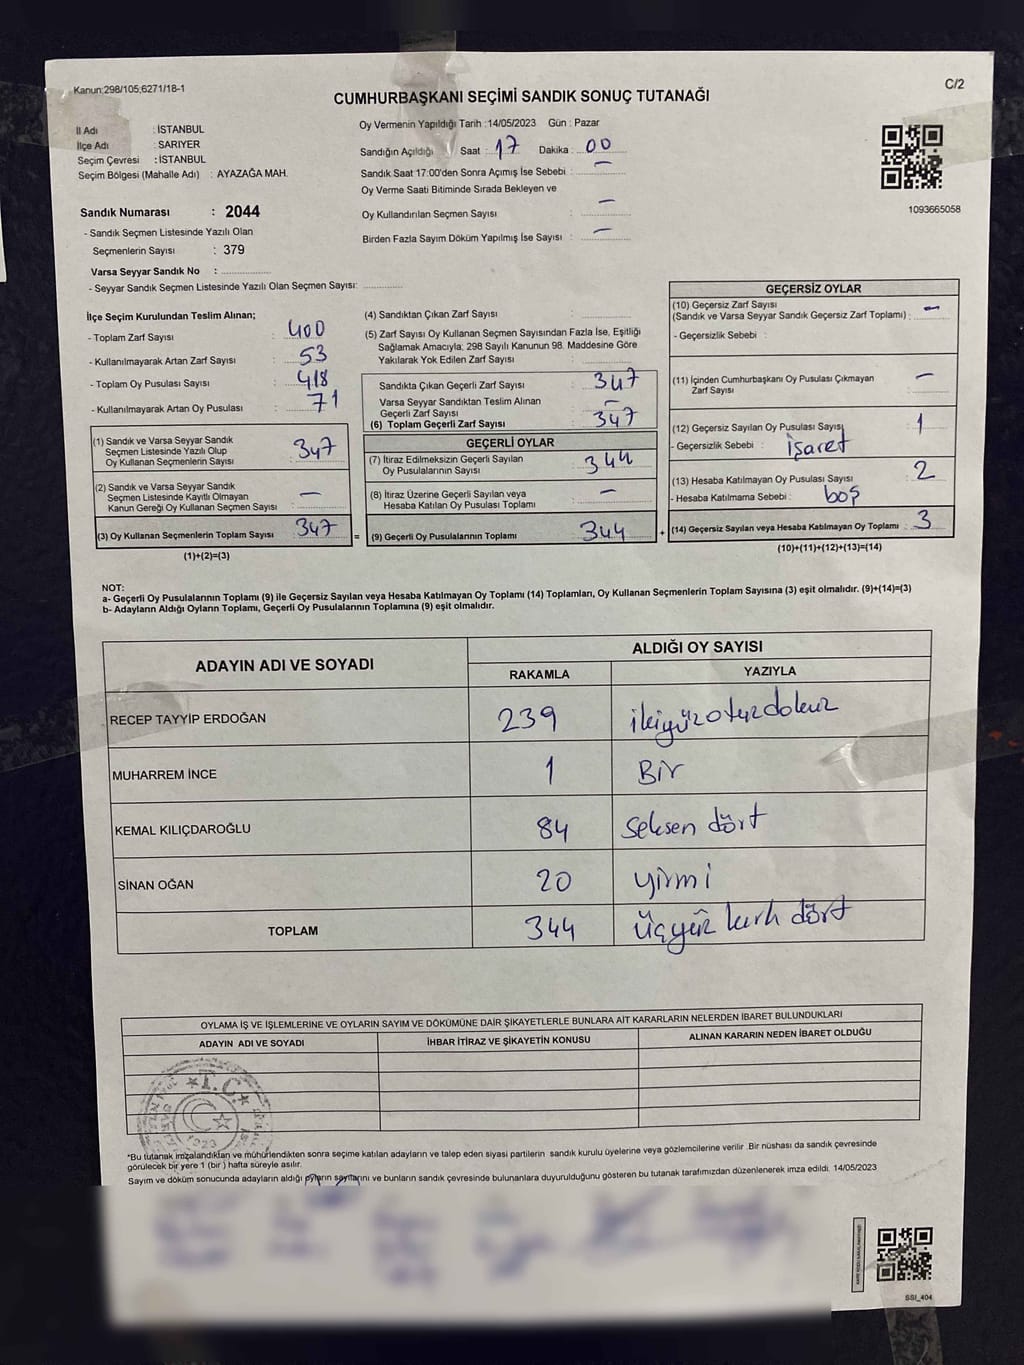 Kanun:298/105;6271/18-1
C/2
CUMHURBAŞKANI SEÇİMİ SANDIK SONUÇ TUTANAĞI
İl Adı : İSTANBUL
İlçe Adı : SARIYER
Seçim Çevresi : İSTANBUL
Seçim Bölgesi (Mahalle Adı) : AYAZAĞA MAH.
Oy Vermenin Yapıldığı Tarih :14/05/2023 Gün : Pazar
Sandığın Açıldığı Saat : 17 Dakika : 00
Sandık Saat 17:00'den Sonra Açımış İse Sebebi : –
Oy Verme Saati Bitiminde Sırada Bekleyen ve
Oy Kullandırılan Seçmen Sayısı : –
Birden Fazla Sayım Döküm Yapılmış İse Sayısı : –
1093665058
Sandık Numarası : 2044
- Sandık Seçmen Listesinde Yazılı Olan
Seçmenlerin Sayısı : 379
Varsa Seyyar Sandık No :
- Seyyar Sandık Seçmen Listesinde Yazılı Olan Seçmen Sayısı:
İlçe Seçim Kurulundan Teslim Alınan;
- Toplam Zarf Sayısı : 400
- Kullanılmayarak Artan Zarf Sayısı : 53
- Toplam Oy Pusulası Sayısı : 418
- Kullanılmayarak Artan Oy Pusulası : 71
(1) Sandık ve Varsa Seyyar Sandık
Seçmen Listesinde Yazılı Olup
Oy Kullanan Seçmenlerin Sayısı : 347
(2) Sandık ve Varsa Seyyar Sandık
Seçmen Listesinde Kayıtlı Olmayan
Kanun Gereği Oy Kullanan Seçmen Sayısı : –
(3) Oy Kullanan Seçmenlerin Toplam Sayısı : 347
(1)+(2)=(3)
(4) Sandıktan Çıkan Zarf Sayısı :
(5) Zarf Sayısı Oy Kullanan Seçmen Sayısından Fazla İse, Eşitliği
Sağlamak Amacıyla; 298 Sayılı Kanunun 98. Maddesine Göre
Yakılarak Yok Edilen Zarf Sayısı :
Sandıkta Çıkan Geçerli Zarf Sayısı : 347
Varsa Seyyar Sandıktan Teslim Alınan
Geçerli Zarf Sayısı : –
(6) Toplam Geçerli Zarf Sayısı : 347
GEÇERLİ OYLAR
(7) İtiraz Edilmeksizin Geçerli Sayılan
Oy Pusulalarının Sayısı : 344
(8) İtiraz Üzerine Geçerli Sayılan veya
Hesaba Katılan Oy Pusulası Toplamı : –
= (9) Geçerli Oy Pusulalarının Toplamı : 344 +
GEÇERSİZ OYLAR
(10) Geçersiz Zarf Sayısı
(Sandık ve Varsa Seyyar Sandık Geçersiz Zarf Toplamı) : –
- Geçersizlik Sebebi :
(11) İçinden Cumhurbaşkanı Oy Pusulası Çıkmayan
Zarf Sayısı : –
(12) Geçersiz Sayılan Oy Pusulası Sayısı : 1
- Geçersizlik Sebebi : işaret
(13) Hesaba Katılmayan Oy Pusulası Sayısı : 2
- Hesaba Katılmama Sebebi : boş
(14) Geçersiz Sayılan veya Hesaba Katılmayan Oy Toplamı : 3
(10)+(11)+(12)+(13)=(14)
NOT:
a- Geçerli Oy Pusulalarının Toplamı (9) ile Geçersiz Sayılan veya Hesaba Katılmayan Oy Toplamı (14) Toplamları, Oy Kullanan Seçmenlerin Toplam Sayısına (3) eşit olmalıdır. (9)+(14)=(3)
b- Adayların Aldığı Oyların Toplamı, Geçerli Oy Pusulalarının Toplamına (9) eşit olmalıdır.
ADAYIN ADI VE SOYADI
ALDIĞI OY SAYISI
RAKAMLA YAZIYLA
RECEP TAYYİP ERDOĞAN 239 ikiyüzotuzdokuz
MUHARREM İNCE 1 Bir
KEMAL KILIÇDAROĞLU 84 Seksen dört
SİNAN OĞAN 20 yirmi
TOPLAM 344 Üçyüz kırk dört
OYLAMA İŞ VE İŞLEMLERİNE VE OYLARIN SAYIM VE DÖKÜMÜNE DAİR ŞİKAYETLERLE BUNLARA AİT KARARLARIN NELERDEN İBARET BULUNDUKLARI
ADAYIN ADI VE SOYADI İHBAR İTİRAZ VE ŞİKAYETİN KONUSU ALINAN KARARIN NEDEN İBARET OLDUĞU
T.C.
1923
*Bu tutanak imzalandıktan ve mühürlendikten sonra seçime katılan adayların ve talep eden siyasi partilerin sandık kurulu üyelerine veya gözlemcilerine verilir .Bir nüshası da sandık çevresinde
görülecek bir yere 1 (bir ) hafta süreyle asılır.
Sayım ve döküm sonucunda adayların aldığı oyların sayılarını ve bunların sandık çevresinde bulunanlara duyurulduğunu gösteren bu tutanak tarafımızdan düzenlenerek imza edildi. 14/05/2023
SSI_404